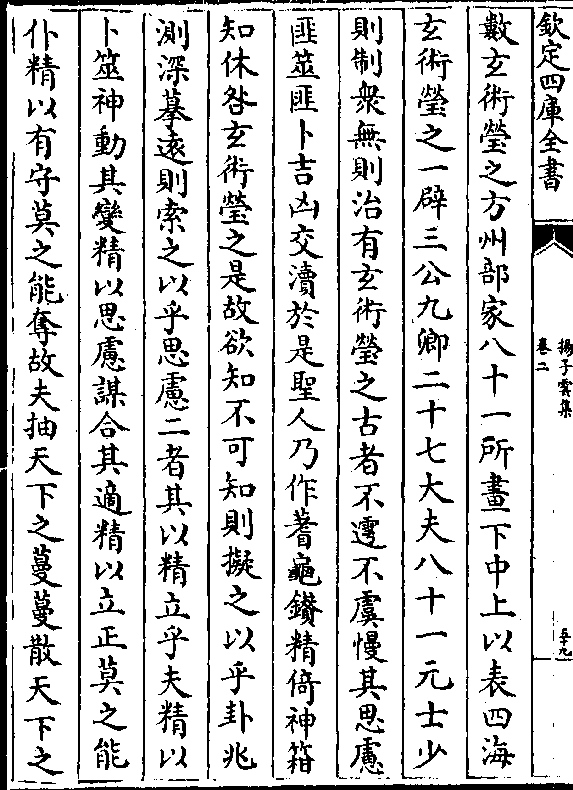 欽定四庫全書
揚子雲集
卷二
五十九
數玄術瑩之方州部家八十一所畫下中上以表四海
玄術瑩之一辟三公九卿二十七大夫八十一元士少
則制衆無則治有玄術瑩之古者不遷不虞慢其思慮
匪筮匪卜吉凶交瀆於是聖人乃作蓍龜鑚精倚神箝
知休咎玄術瑩之是故欲知不可知則擬之以乎卦兆
測深摹遠則索之以乎思慮二者其以精立乎夫精以
卜筮神動其變精以思慮謀合其適精以立正莫之能
仆精以有守莫之能奪故夫抽天下之蔓蔓散天下之